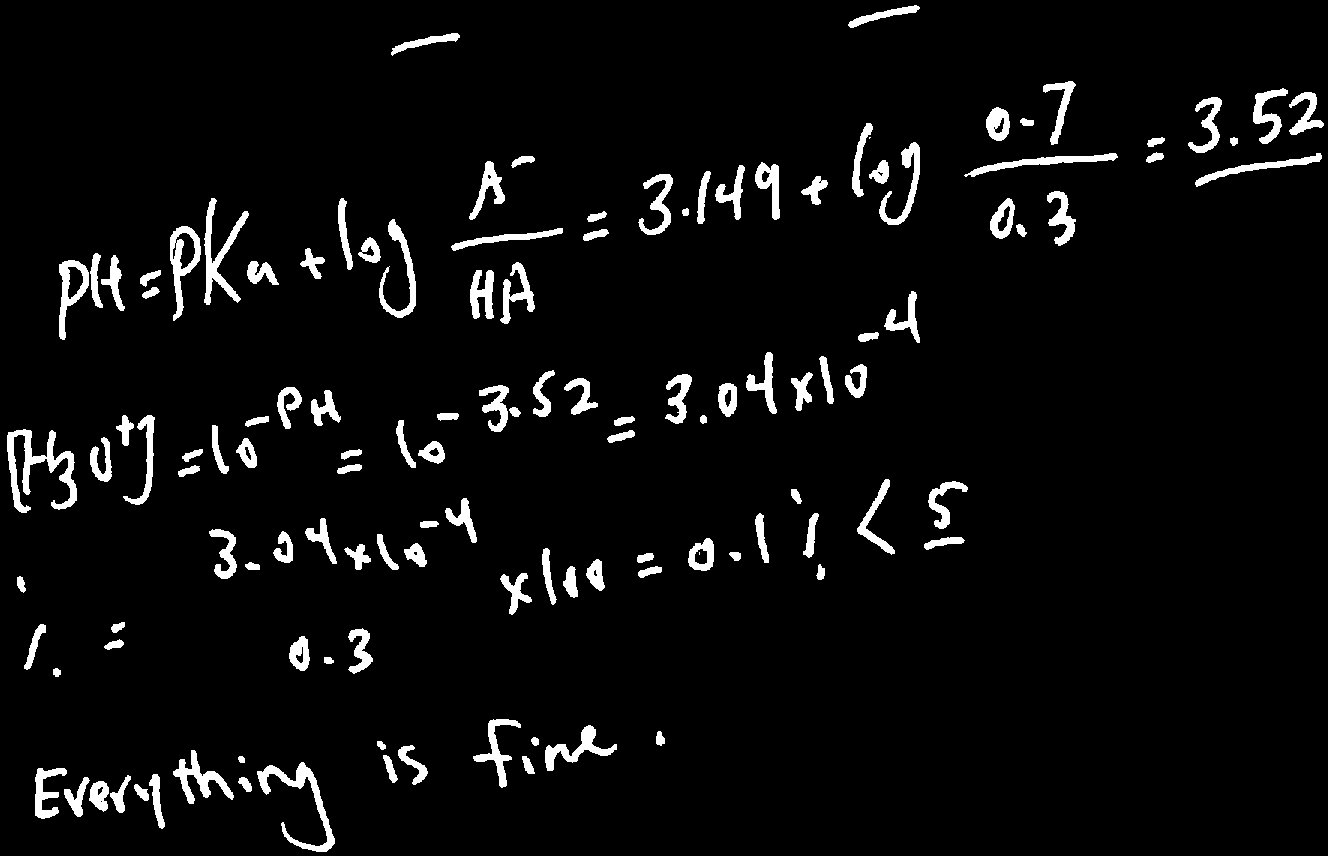 PH = PKa + log A⁻/HA = 3.149 + log 0.7/0.3 = 3.52
[H₃O⁺] = 10^-PH = 10^-3.52 = 3.04 x 10^-4
% = 3.04 x 10^-4 / 0.3 x 100 = 0.1 % < 5
Everything is fine.